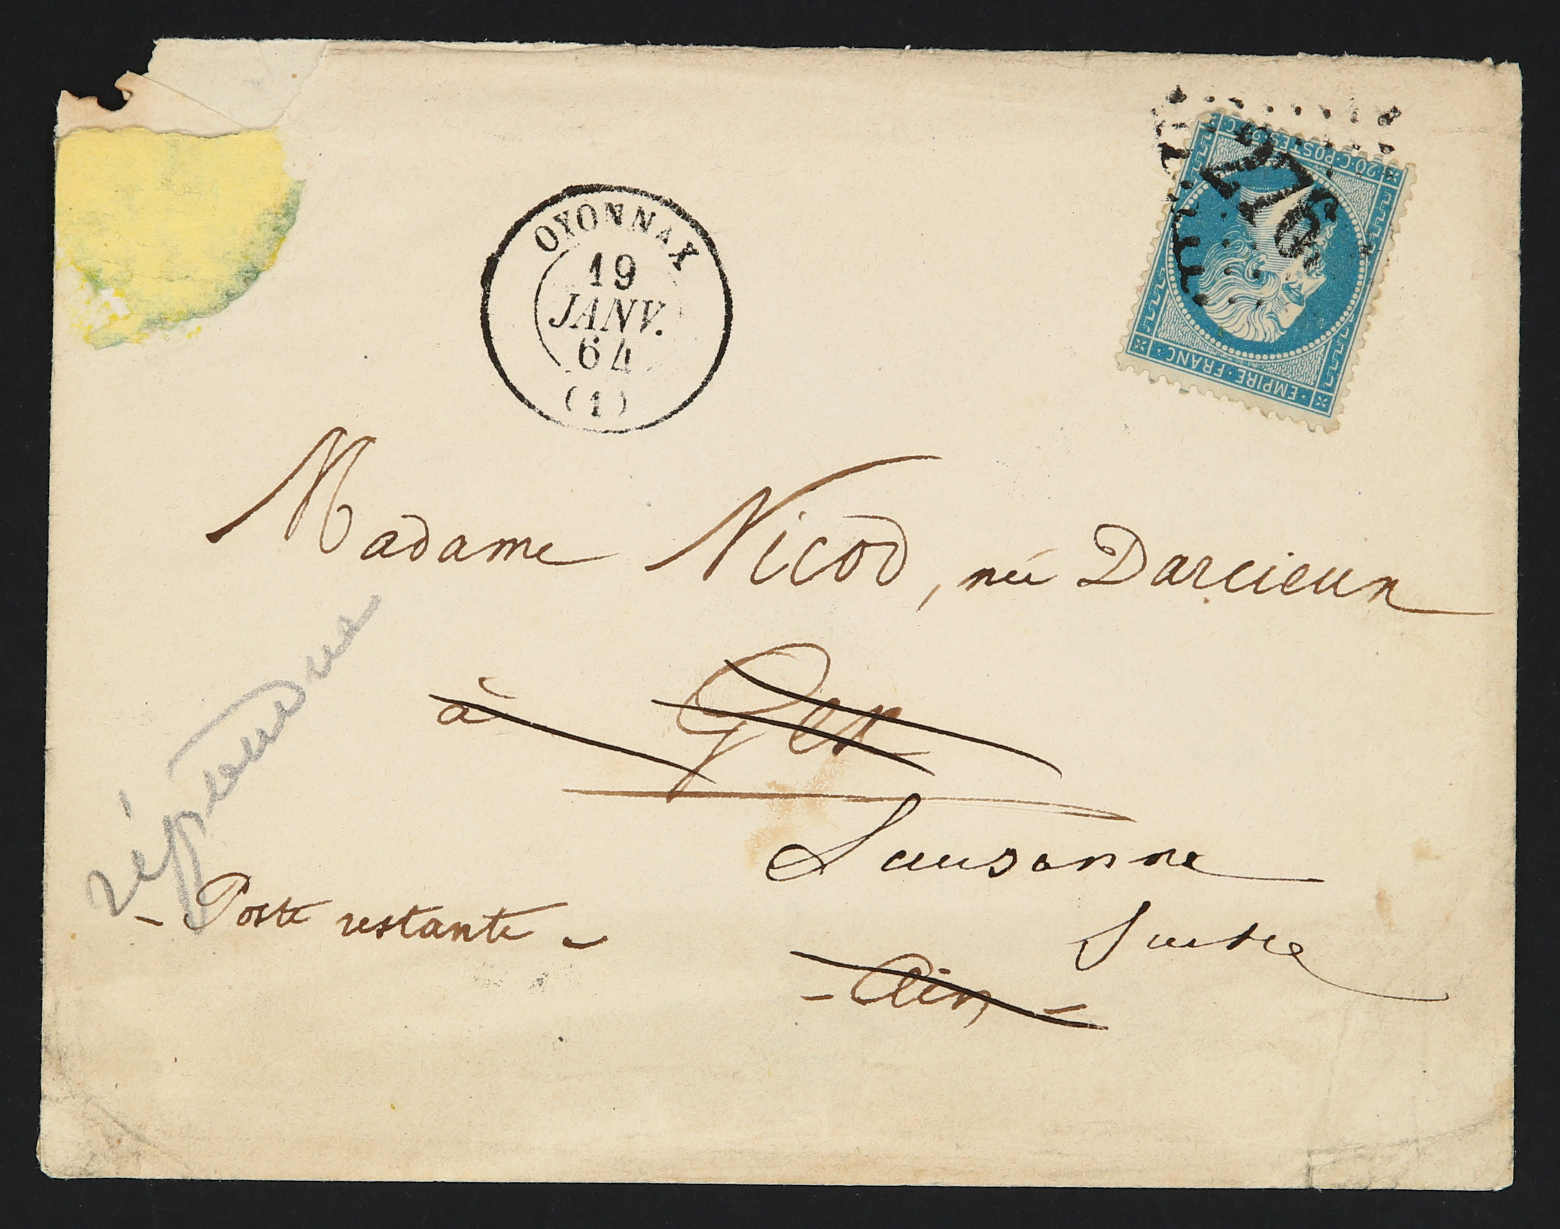 OYONNAX
19
JANV.
64
(1)
20·C·POSTES·20·C
276
EMPIRE·FRANC·
Madame Nicod, née Darcieux
à Gex
Lausanne
Suisse
- Poste restante -
- Ain -